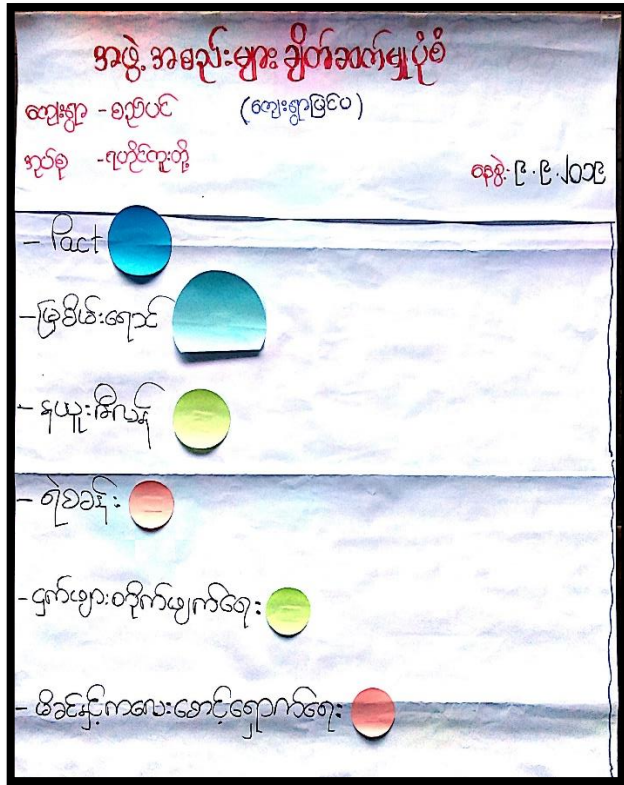 အဖွဲ့အစည်းများ ချိတ်ဆက်မှုပုံစံ
ကျေးရွာ - စည်ပင် (ကျေးရွာပြင်ပ)
အုပ်စု -
နေ့စွဲ. ၉.၉.၂၀၁၉
- Pact
- မြစိမ်းရောင်
- နယူးဇီလန်
- ရဲစခန်း
- ငှက်ဖျားတိုက်ဖျက်ရေး
- မိခင်နှင့်ကလေးစောင့်ရှောက်ရေး